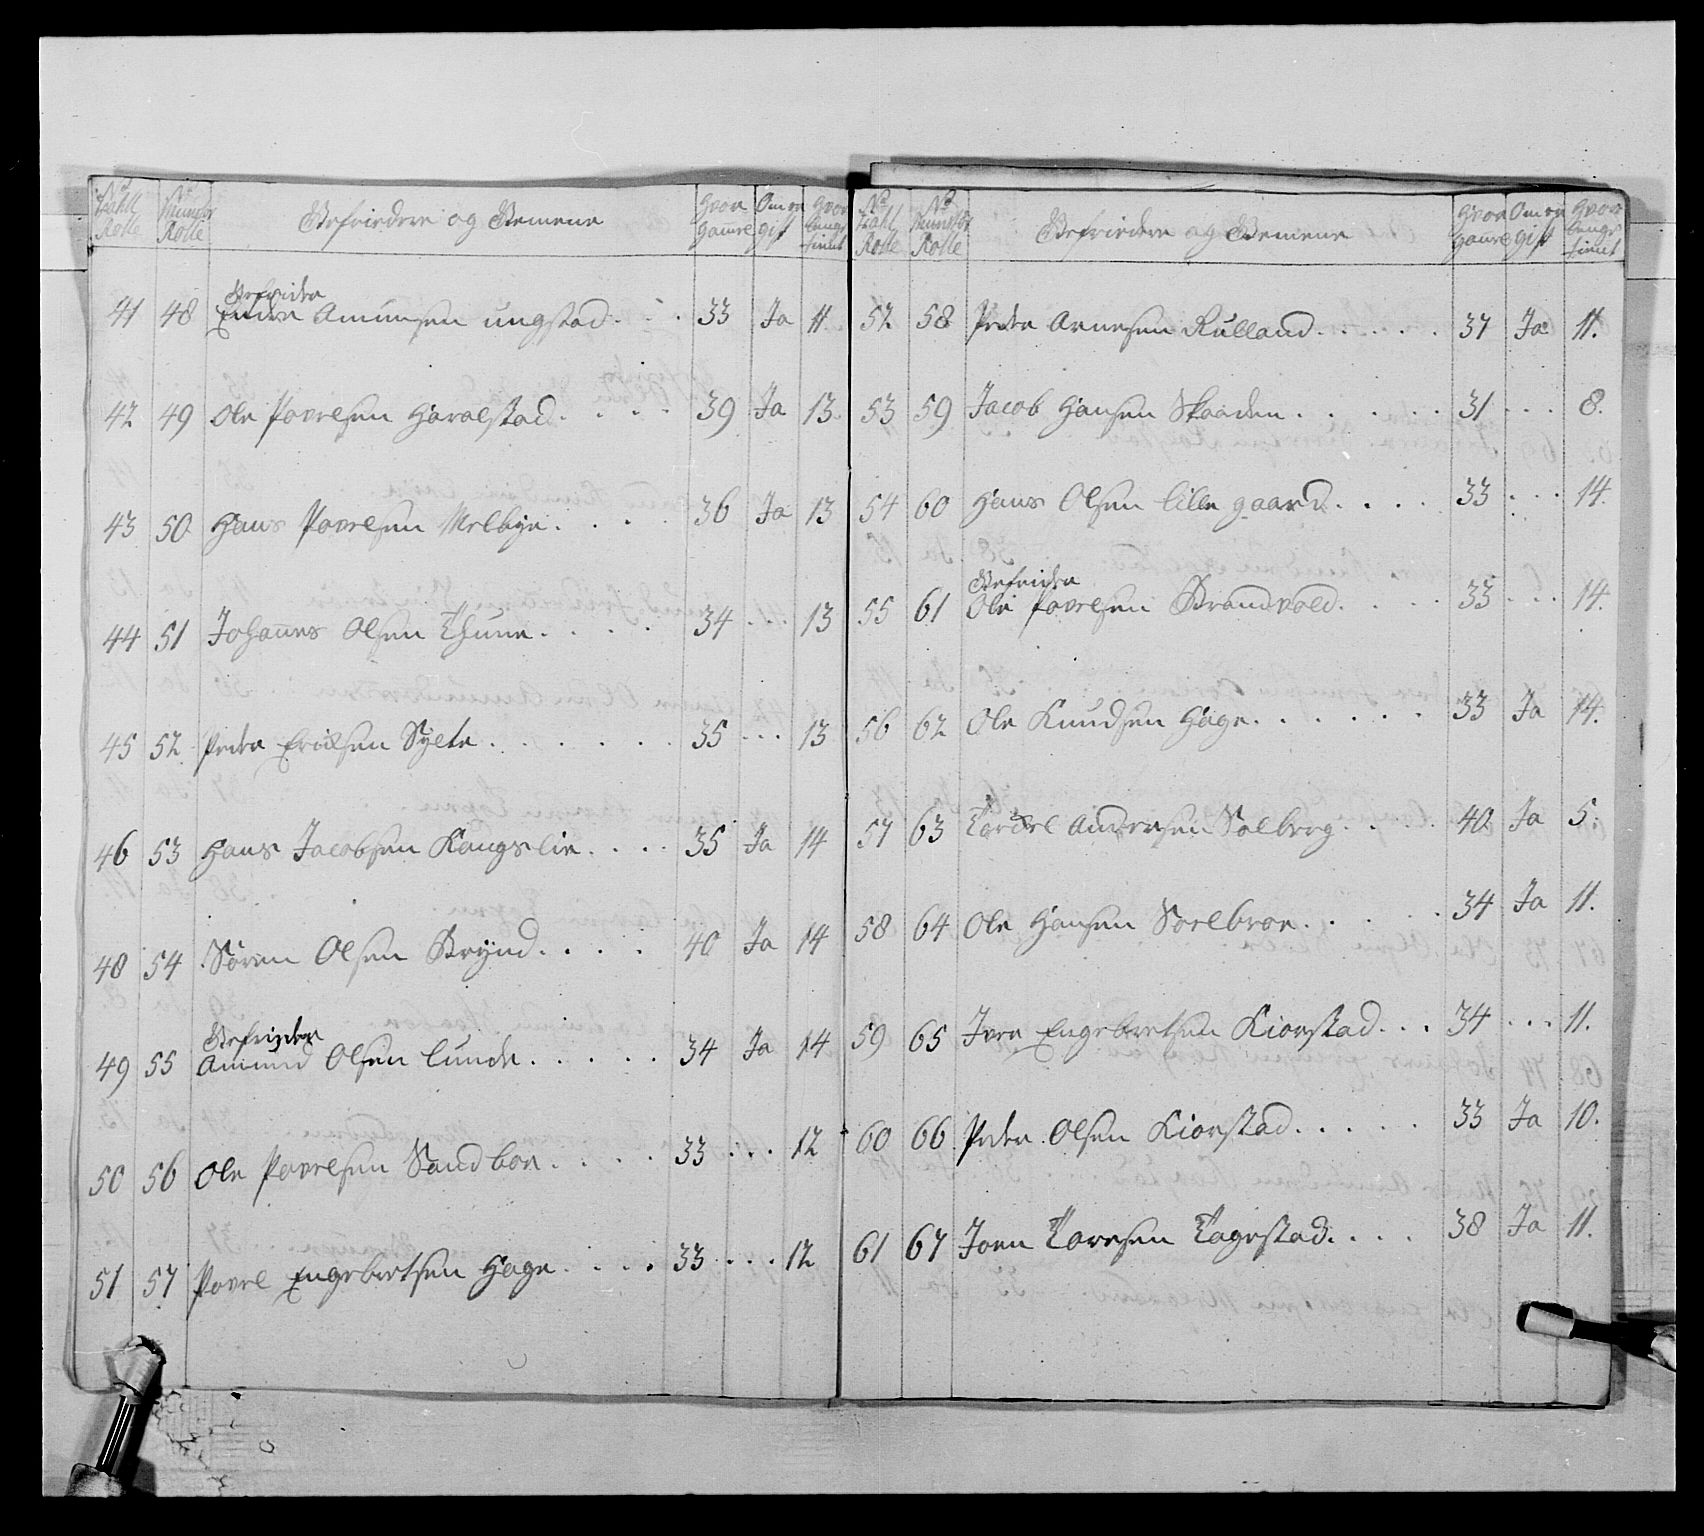 No Zahl Rolle | No Munster Rolle | Gefriedere og Gemene | Hvor gamle | Om er gift | Hvor længe tient
Gefrider
41 48 Endre Amunsen ungstad . . . 33 Ja 11.
42 49 Ole Povelsen Haralstad . . . . 39 Ja 13.
43 50. Hans Povelsen Melbye . . . . 36 Ja 13
44 51 Johannes Olsen Thune . . . . 34 . . . 13
45 52. Peder Erichsen Sylte . . . . . . 35 . . . 13
46 53 Hans Jacobsen Kangslie . . . . 35 Ja 14
48 54 Søren Olsen Brynd . . . . 40 Ja 14
Gefrider
49 55 Amund Olsen Lunde . . . . . 34 Ja 14
50 56 Ole Povelsen Sandboe . . . . 33 . . . 12
51 57 Povel Engebretsen Hage . . . . 33 . . . 12
No Zahl Rolle | No Munster Rolle | Gefriedere og Gemene | Hvor gamle | Om er gift | Hvor længe tient
52 58 Peder Arnesen Rulland . . . . . 37 Ja 11.
53 59 Jacob Hansen Skaaden . . . . . 31 . . . 8.
54 60 Hans Olsen Lille gaard . . . . 33 . . . 14.
Gefrider
55 61 Ole Povelsen Brandvold . . . . 33 . . . 14.
56 62 Ole Knudsen Hage . . . . . . 33 Ja 14.
57 63 Tordel Andersen Solberg . . . . 40 Ja 5.
58 64 Ole Hansen Sorlbroe . . . . . 34 Ja 11.
59 65 Iver Engebretsen Kiorstad . . . 34 . . . 11.
60 66 Peder Olsen Kiorstad . . . . . 33 Ja 10.
61 67 Joen Toresen Tagestad . . . . 38 Ja 11.